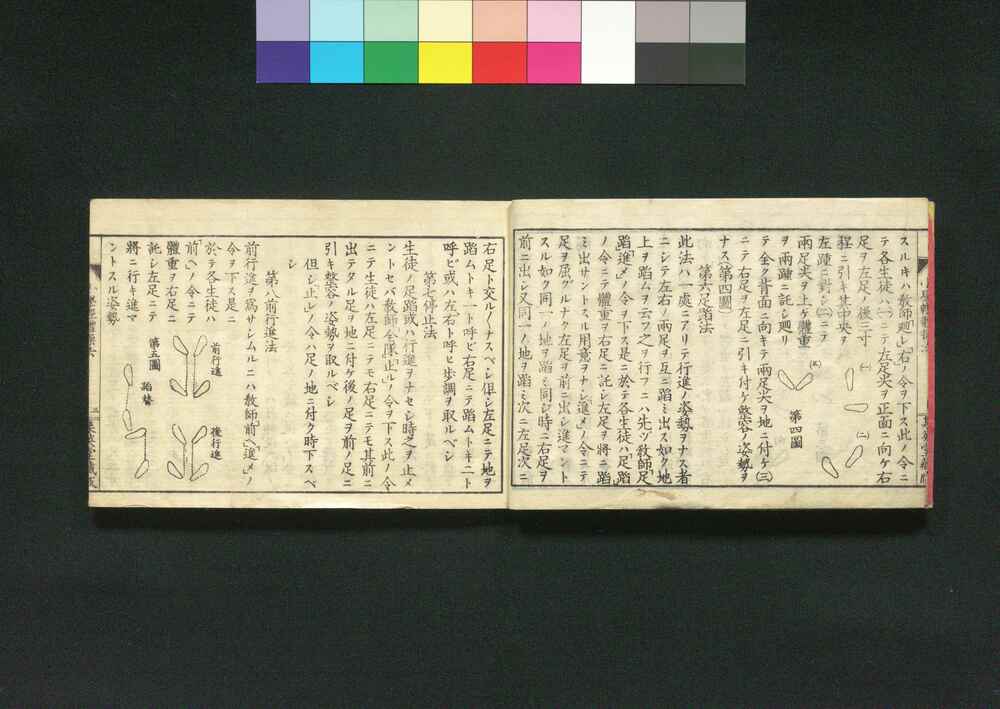 スルキハ教師「廻レ右」ノ令ヲ下ス此ノ令ニ
テ各生徒ハ(一)ニテ左足尖ヲ正面ニ向ケ右
足ヲ左足ノ後三寸
程ニ引キ其中央ヲ
左踵ニ對シ(二)ニテ
兩足尖ヲ上ケ體重
ヲ兩踵ニ託シ廻リ
テ全ク背面ニ向キテ兩足尖ヲ地ニ付ケ(三)
ニテ右足ヲ左足ニ引キ付ケ整容ノ姿勢ヲ
ナス(第四圖)
第四圖
(一)
(二)
(三)
第六足蹈法
此法ハ一處ニアリテ行進ノ姿勢ヲナス者
ニシテ左右ノ兩足ヲ互ニ蹈ミ出ス如ク地
上ヲ蹈ムヲ云フ之ヲ行フニハ先ヅ教師「足
蹈」「進メ」ノ令ヲ下ス是ニ於テ各生徒ハ「足蹈」
ノ令ニテ體重ヲ右足ニ託シ左足ヲ將ニ蹈
ミ出サントスル用意ヲナシ「進メ」ノ令ニテ
足ヲ屈グルナク左足ヲ前ニ出シ進マント
スル如ク同一ノ地ヲ蹈ミ同シ時ニ右足ヲ
前ニ出シ又同一ノ地ヲ蹈ミ次ニ左足次ニ
右足ト交ルノヽナスベシ但シ左足ニテ地ヲ
蹈ムトキ一ト呼ビ右足ニテ蹈ムトキ二ト
呼ビ或ハ左右ト呼ヒ歩調ヲ取ルベシ
第七停止法
生徒ノ足蹈或ハ行進ヲナセシ時之ヲ止メ
ントセバ教師「全隊」「止レ」ノ令ヲ下ス此ノ令
ニテ生徒ハ左足ニテモ右足ニテモ其前ニ
出テタル足ヲ地ニ付ケ後ノ足ヲ前ノ足ニ
引キ整容ノ姿勢ヲ取ルベシ
但シ「止レ」ノ令ハ足ノ地ニ付ク時下スベ
シ
第八前行進法
前行進ヲ爲サシムルニハ教師「前ヘ」「進メ」ノ
令ヲ下ス是ニ
於テ各生徒ハ
「前ヘ」ノ令ニテ
體重ヲ右足ニ
託シ左足ニテ
將ニ行キ進マ
ントスル姿勢
前行進
後行進
第五圖
蹈替